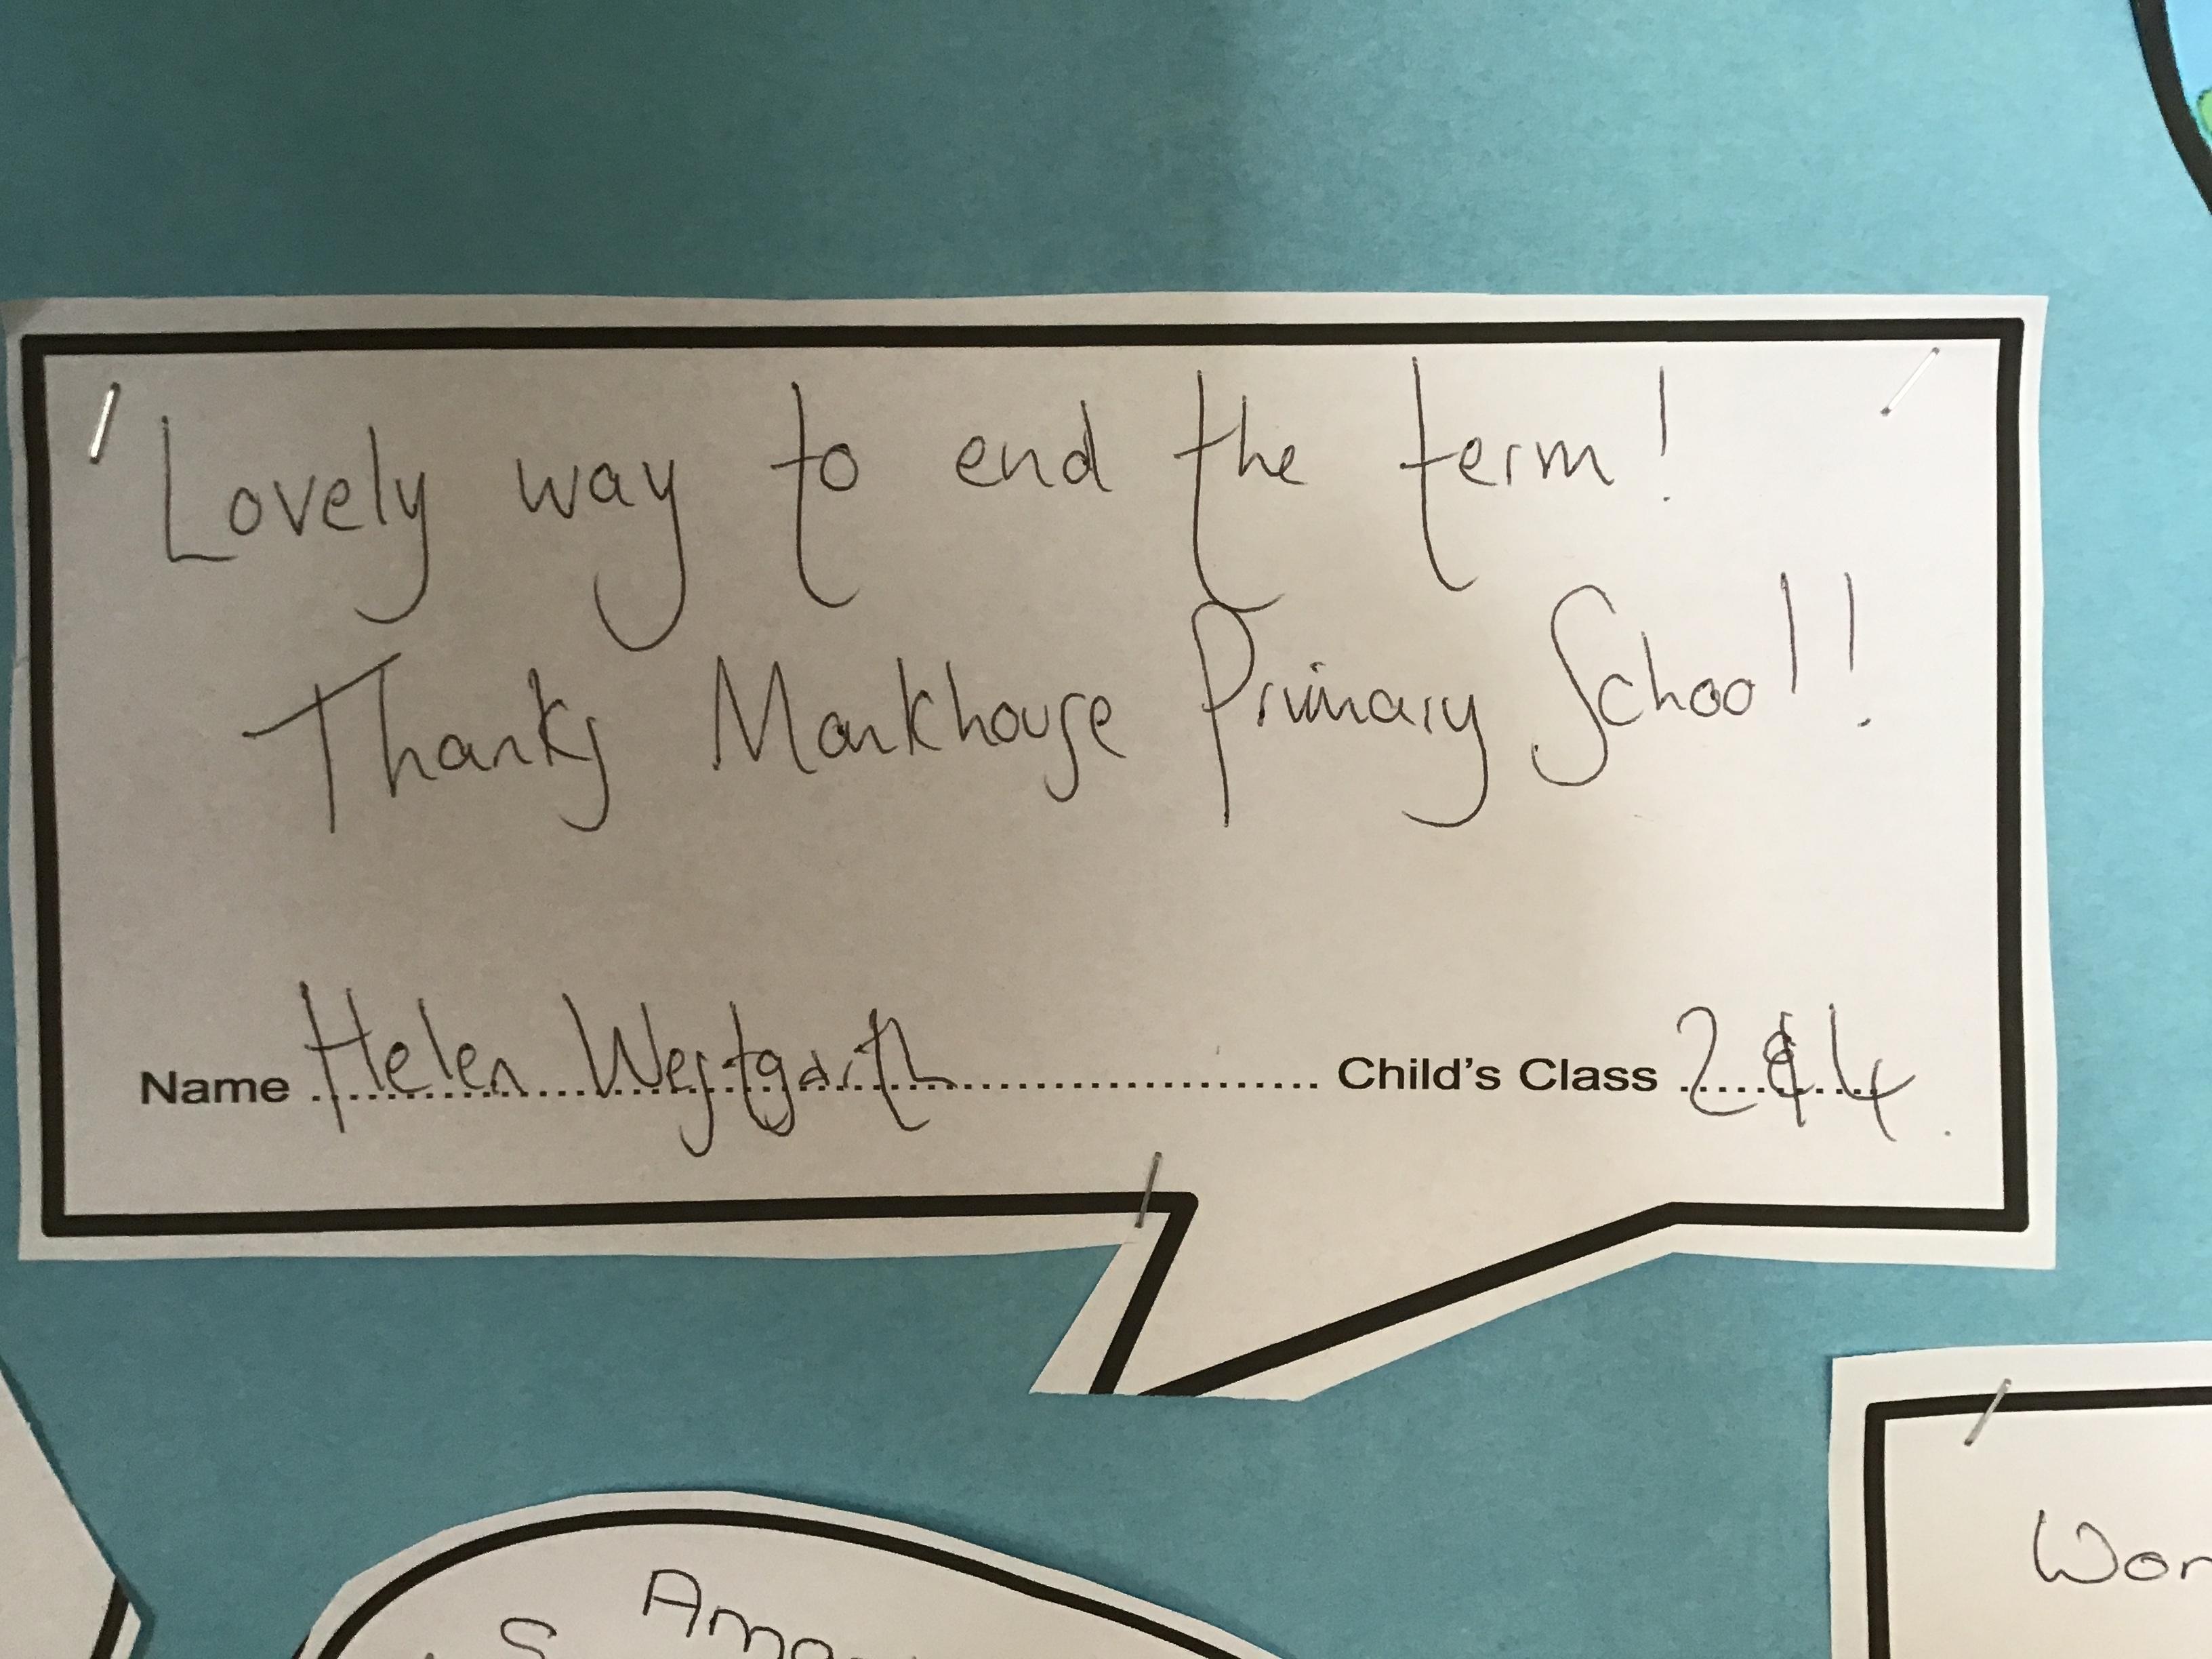 Lovely way to end the term!
Thanks Markhouse Primary School!
Name Helen Westgarth Child's Class 2 & 4.